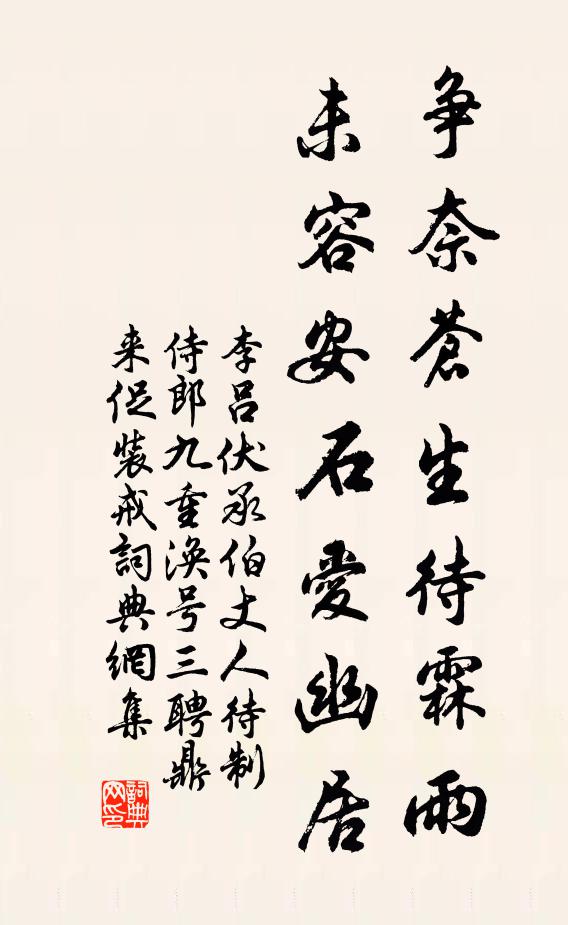 争奈蒼生待霖雨
未容安石愛幽居
李吕伏承伯丈人待制
侍郎九重涣号三聘鼎
来促装戒詞典網集
詞典
网印